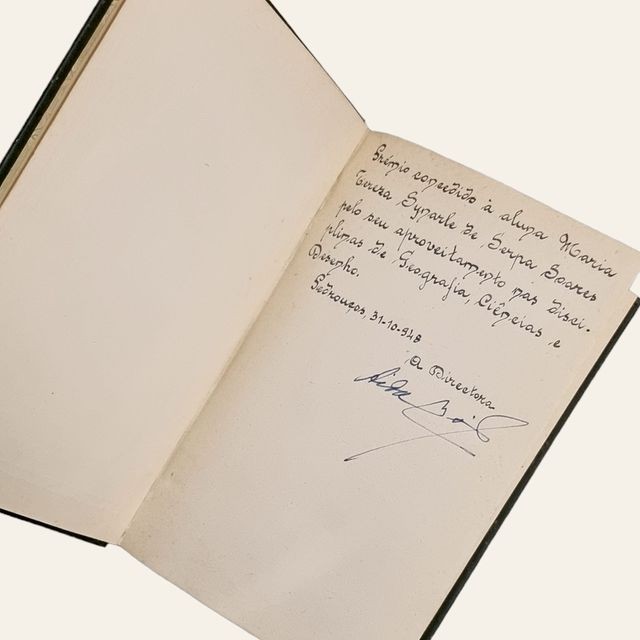 Prémio concedido à aluna Maria
Tereza Synarle de Serpa Soares
pelo seu aproveitamento nas disci-
plinas de Geografia, Ciências e
Desenho.
Pedrouços, 31-10-948
A Directora
Aida